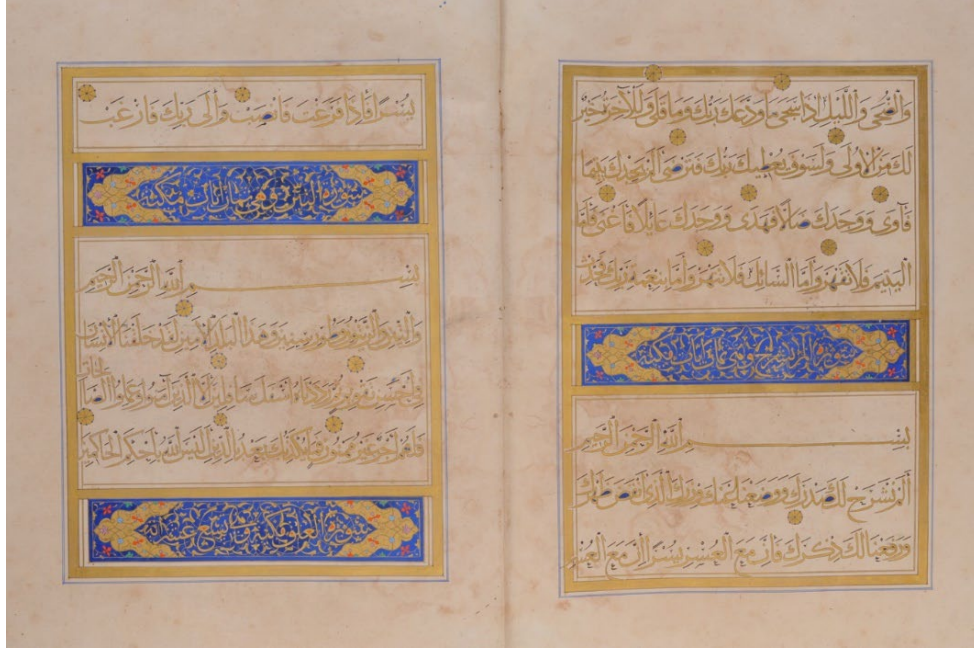 وَالضُّحَى وَاللَّيْلِ اِذَا سَجَى مَا وَدَّعَكَ رَبُّكَ وَمَا قَلَى وَلَلْآخِرَةُ خَيْرٌ
لَكَ مِنَ الْاُولَى وَلَسَوْفَ يُعْطِيكَ رَبُّكَ فَتَرْضَى اَلَمْ يَجِدْكَ يَتِيمًا
فَآوَى وَوَجَدَكَ ضَالًّا فَهَدَى وَوَجَدَكَ عَايِلًا فَاَغْنَى فَاَمَّا
الْيَتِيمَ فَلَا تَقْهَرْ وَاَمَّا السَّائِلَ فَلَا تَنْهَرْ وَاَمَّا بِنِعْمَةِ رَبِّكَ فَحَدِّثْ
سورة الم نشرح وهي ثمان ايات مكية
بِسْمِ اللَّهِ الرَّحْمٰنِ الرَّحِيمِ
اَلَمْ نَشْرَحْ لَكَ صَدْرَكَ وَوَضَعْنَا عَنْكَ وِزْرَكَ الَّذِي اَنْقَضَ ظَهْرَكَ
وَرَفَعْنَا لَكَ ذِكْرَكَ فَاِنَّ مَعَ الْعُسْرِ يُسْرًا اِنَّ مَعَ الْعُسْرِ
يُسْرًا فَاِذَا فَرَغْتَ فَانْصَبْ وَاِلَى رَبِّكَ فَارْغَبْ
سورة التين وهي ثمان ايات مكية
بِسْمِ اللَّهِ الرَّحْمٰنِ الرَّحِيمِ
وَالتِّينِ وَالزَّيْتُونِ وَطُورِ سِينِينَ وَهَذَا الْبَلَدِ الْاَمِينِ لَقَدْ خَلَقْنَا الْاِنْسَانَ
فِي اَحْسَنِ تَقْوِيمٍ ثُمَّ رَدَدْنَاهُ اَسْفَلَ سَافِلِينَ اِلَّا الَّذِينَ آمَنُوا وَعَمِلُوا الصَّالِحَاتِ
فَلَهُمْ اَجْرٌ غَيْرُ مَمْنُونٍ فَمَا يُكَذِّبُكَ بَعْدُ بِالدِّينِ اَلَيْسَ اللَّهُ بِاَحْكَمِ الْحَاكِمِينَ
سورة العلق مكية وهي تسع عشر اية